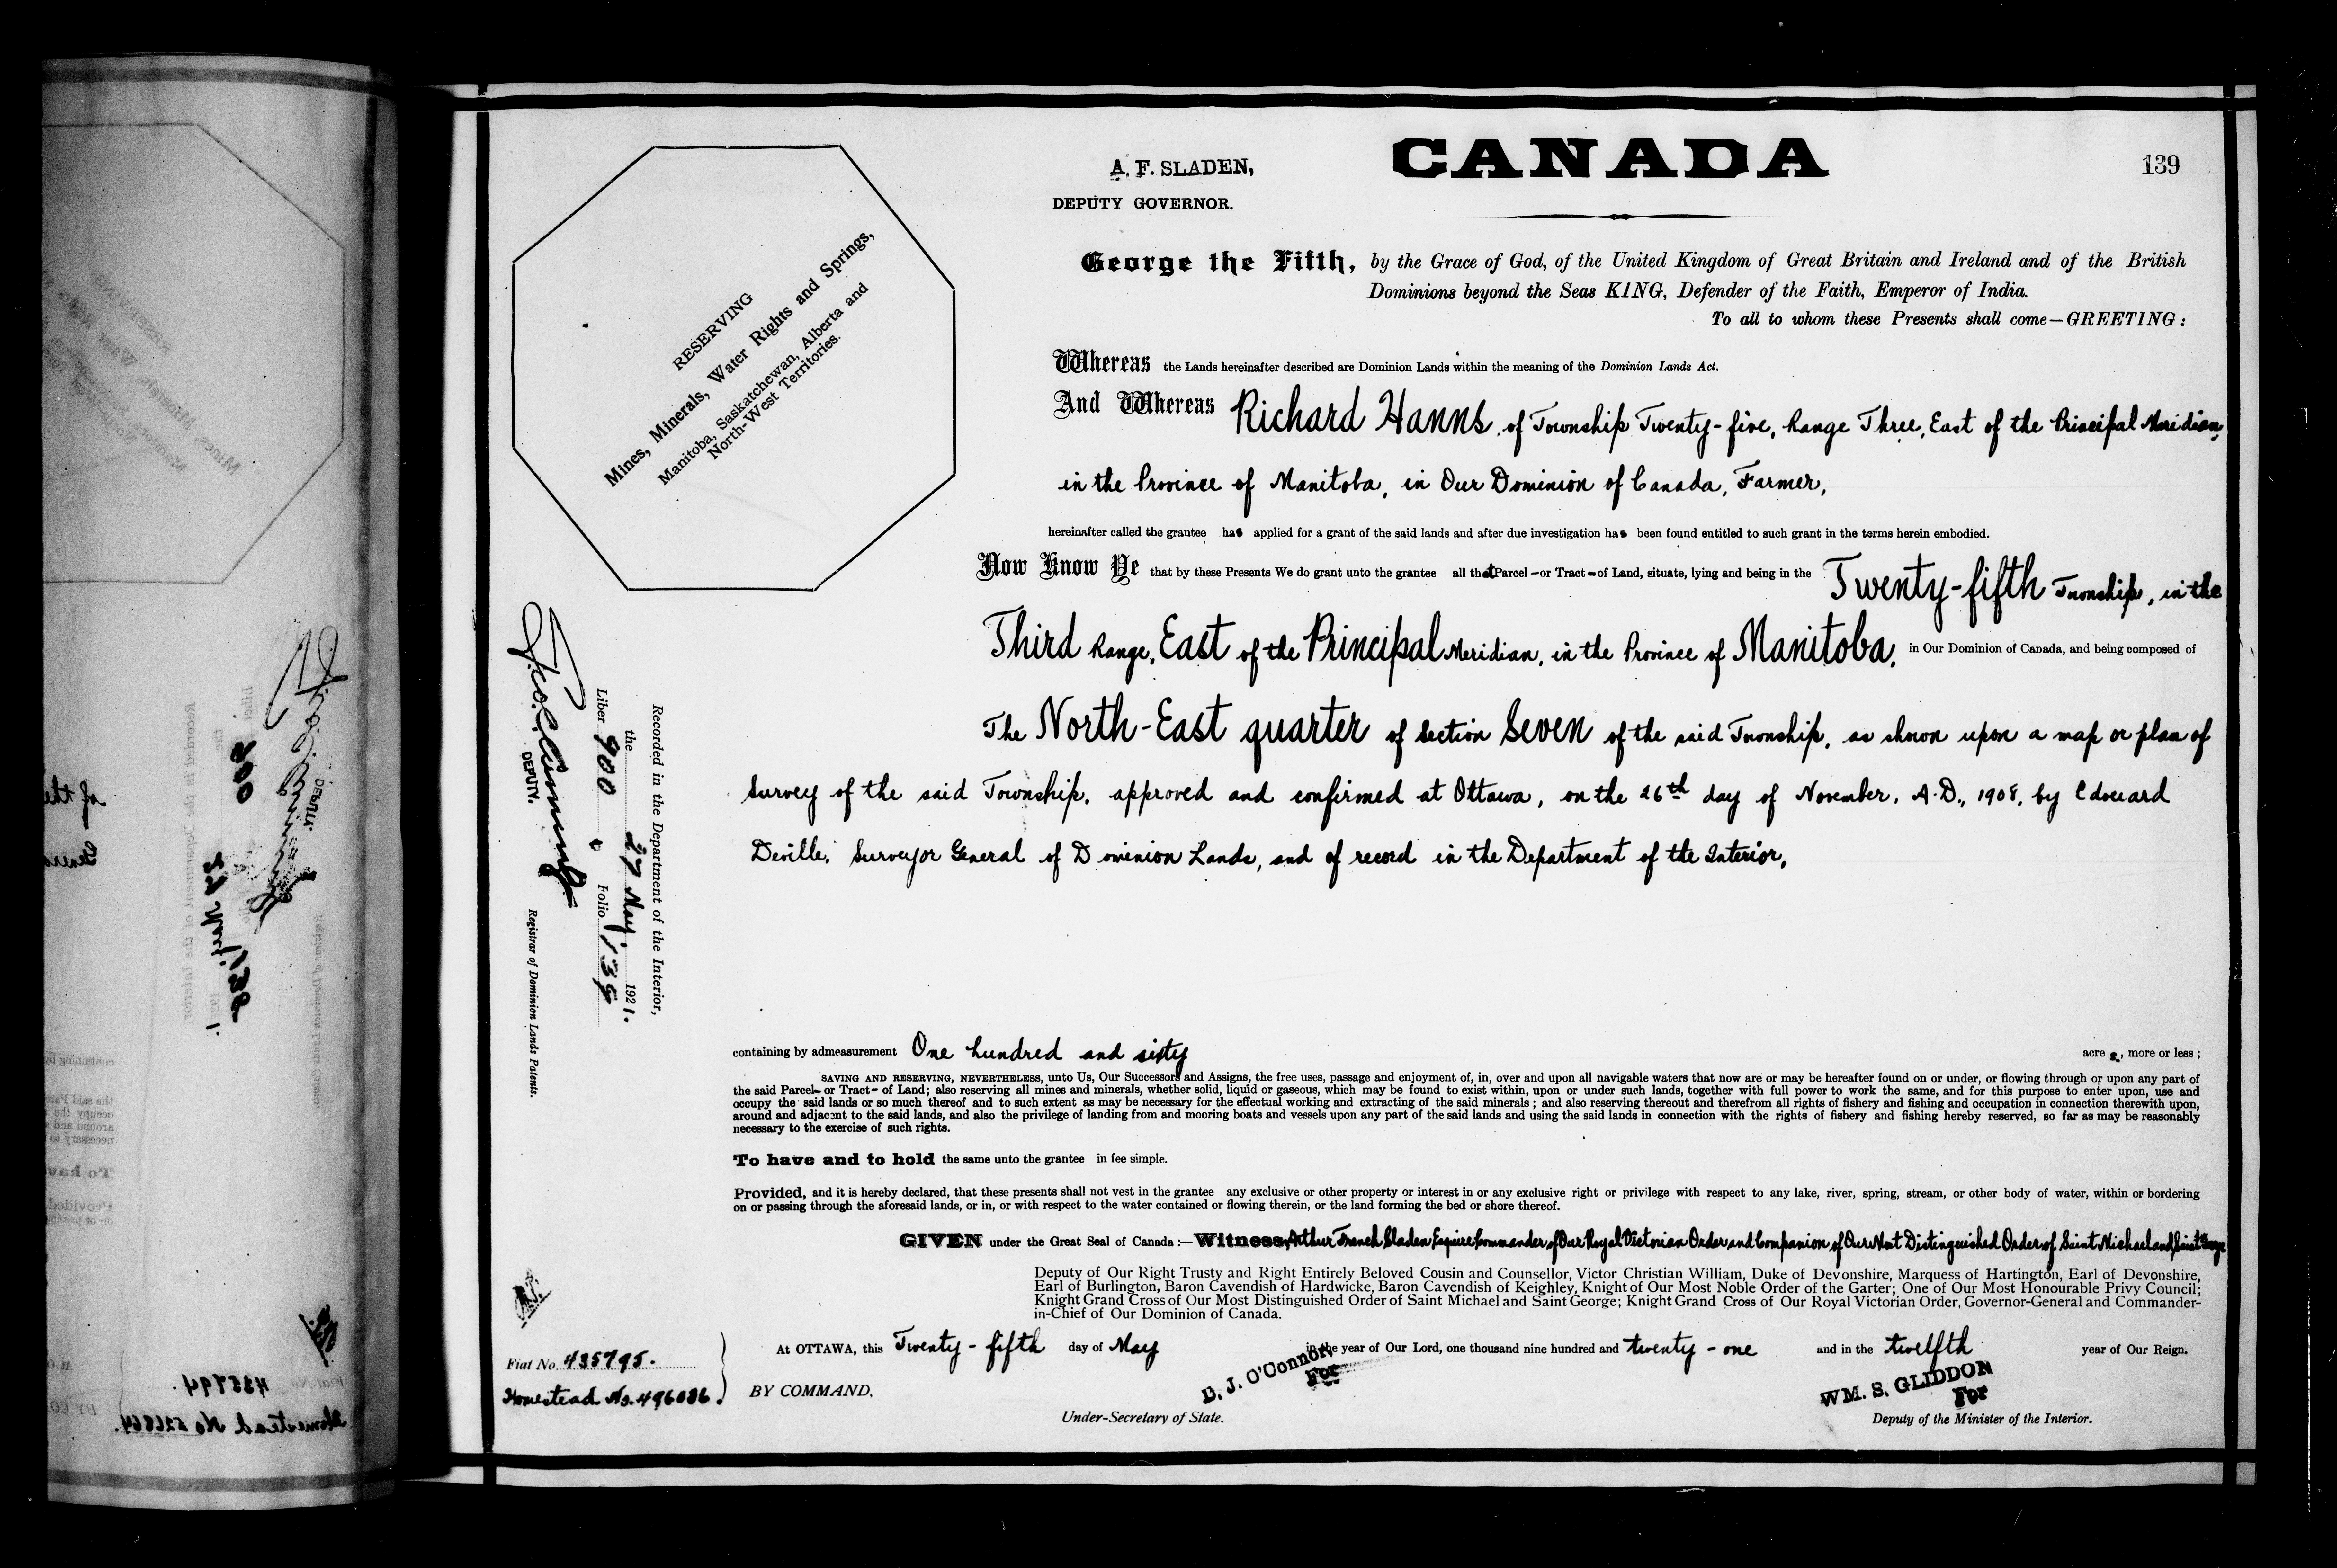 CANADA
A. F. SLADEN,
DEPUTY GOVERNOR.
139
RESERVING
Mines, Minerals, Water Rights and Springs,
Manitoba, Saskatchewan, Alberta and
North-West Territories.
George the Fifth, by the Grace of God, of the United Kingdom of Great Britain and Ireland and of the British
Dominions beyond the Seas KING, Defender of the Faith, Emperor of India.
To all to whom these Presents shall come—GREETING:
Whereas the Lands hereinafter described are Dominion Lands within the meaning of the Dominion Lands Act.
And Whereas Richard Hanns, of Township Twenty-five, Range Three, East of the Principal Meridian,
in the Province of Manitoba, in Our Dominion of Canada, Farmer,
hereinafter called the grantee has applied for a grant of the said lands and after due investigation has been found entitled to such grant in the terms herein embodied.
Now Know Ye that by these Presents We do grant unto the grantee all that Parcel – or Tract – of Land, situate, lying and being in the Twenty-fifth Township, in the
Third Range, East of the Principal Meridian, in the Province of Manitoba, in Our Dominion of Canada, and being composed of
The North-East quarter of Section Seven of the said Township, as shown upon a map or plan of
Survey of the said Township, approved and confirmed at Ottawa, on the 26th day of November, A.D., 1908, by Edouard
Deville, Surveyor General of Dominion Lands, and of record in the Department of the Interior,
Recorded in the Department of the Interior,
the 27 May, 1921.
Liber 900 Folio 139
Geo. C. Cumming
DEPUTY. Registrar of Dominion Lands Patents.
containing by admeasurement One hundred and sixty acres, more or less;
SAVING AND RESERVING, NEVERTHELESS, unto Us, Our Successors and Assigns, the free uses, passage and enjoyment of, in, over and upon all navigable waters that now are or may be hereafter found on or under, or flowing through or upon any part of
the said Parcel– or Tract– of Land; also reserving all mines and minerals, whether solid, liquid or gaseous, which may be found to exist within, upon or under such lands, together with full power to work the same, and for this purpose to enter upon, use and
occupy the said lands or so much thereof and to such extent as may be necessary for the effectual working and extracting of the said minerals; and also reserving thereout and therefrom all rights of fishery and fishing and occupation in connection therewith upon,
around and adjacent to the said lands, and also the privilege of landing from and mooring boats and vessels upon any part of the said lands and using the said lands in connection with the rights of fishery and fishing hereby reserved, so far as may be reasonably
necessary to the exercise of such rights.
To have and to hold the same unto the grantee in fee simple.
Provided, and it is hereby declared, that these presents shall not vest in the grantee any exclusive or other property or interest in or any exclusive right or privilege with respect to any lake, river, spring, stream, or other body of water, within or bordering
on or passing through the aforesaid lands, or in, or with respect to the water contained or flowing therein, or the land forming the bed or shore thereof.
GIVEN under the Great Seal of Canada:—Witness, Arthur French Sladen, Esquire, Commander of Our Royal Victorian Order and Companion of Our Most Distinguished Order of Saint Michael and Saint George
Deputy of Our Right Trusty and Right Entirely Beloved Cousin and Counsellor, Victor Christian William, Duke of Devonshire, Marquess of Hartington, Earl of Devonshire,
Earl of Burlington, Baron Cavendish of Hardwicke, Baron Cavendish of Keighley, Knight of Our Most Noble Order of the Garter; One of Our Most Honourable Privy Council;
Knight Grand Cross of Our Most Distinguished Order of Saint Michael and Saint George; Knight Grand Cross of Our Royal Victorian Order, Governor-General and Commander-
in-Chief of Our Dominion of Canada.
At OTTAWA, this Twenty-fifth day of May in the year of Our Lord, one thousand nine hundred and twenty-one and in the twelfth year of Our Reign.
Fiat No. 435795.
Homestead No. 496086
BY COMMAND.
D. J. O'Connor,
For
Under-Secretary of State.
WM. S. GLIDDON
For
Deputy of the Minister of the Interior.